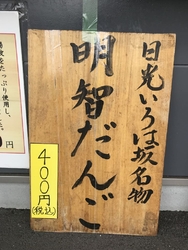 日光いろは坂名物
明智だんご
400円
(税込)
たっぷり使用し、